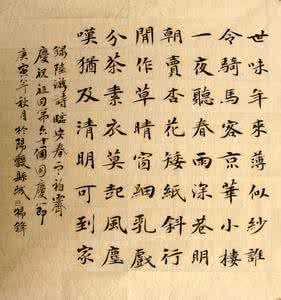 世味年來薄似紗誰
令騎馬客京華小樓
一夜聽春雨深巷明
朝賣杏花矮紙斜行
閒作草晴窗細乳戲
分茶素衣莫起風塵
嘆猶及清明可到家
錄陸游詩臨安春雨初霽
慶祝祖囯第六十個囯慶節
庚寅年秋月於陽穀縣城